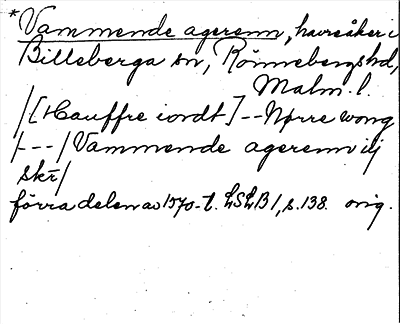 *Vammende agerenn, havreåker i
Billeberga sn, Rönnebergs hd,
Malm. l.
/[Hauffre iordt]--Nørre wong
/---/Vammende agerenn iij
skr/
förra delen av 1570-t. LSLB 1, s. 138. orig.